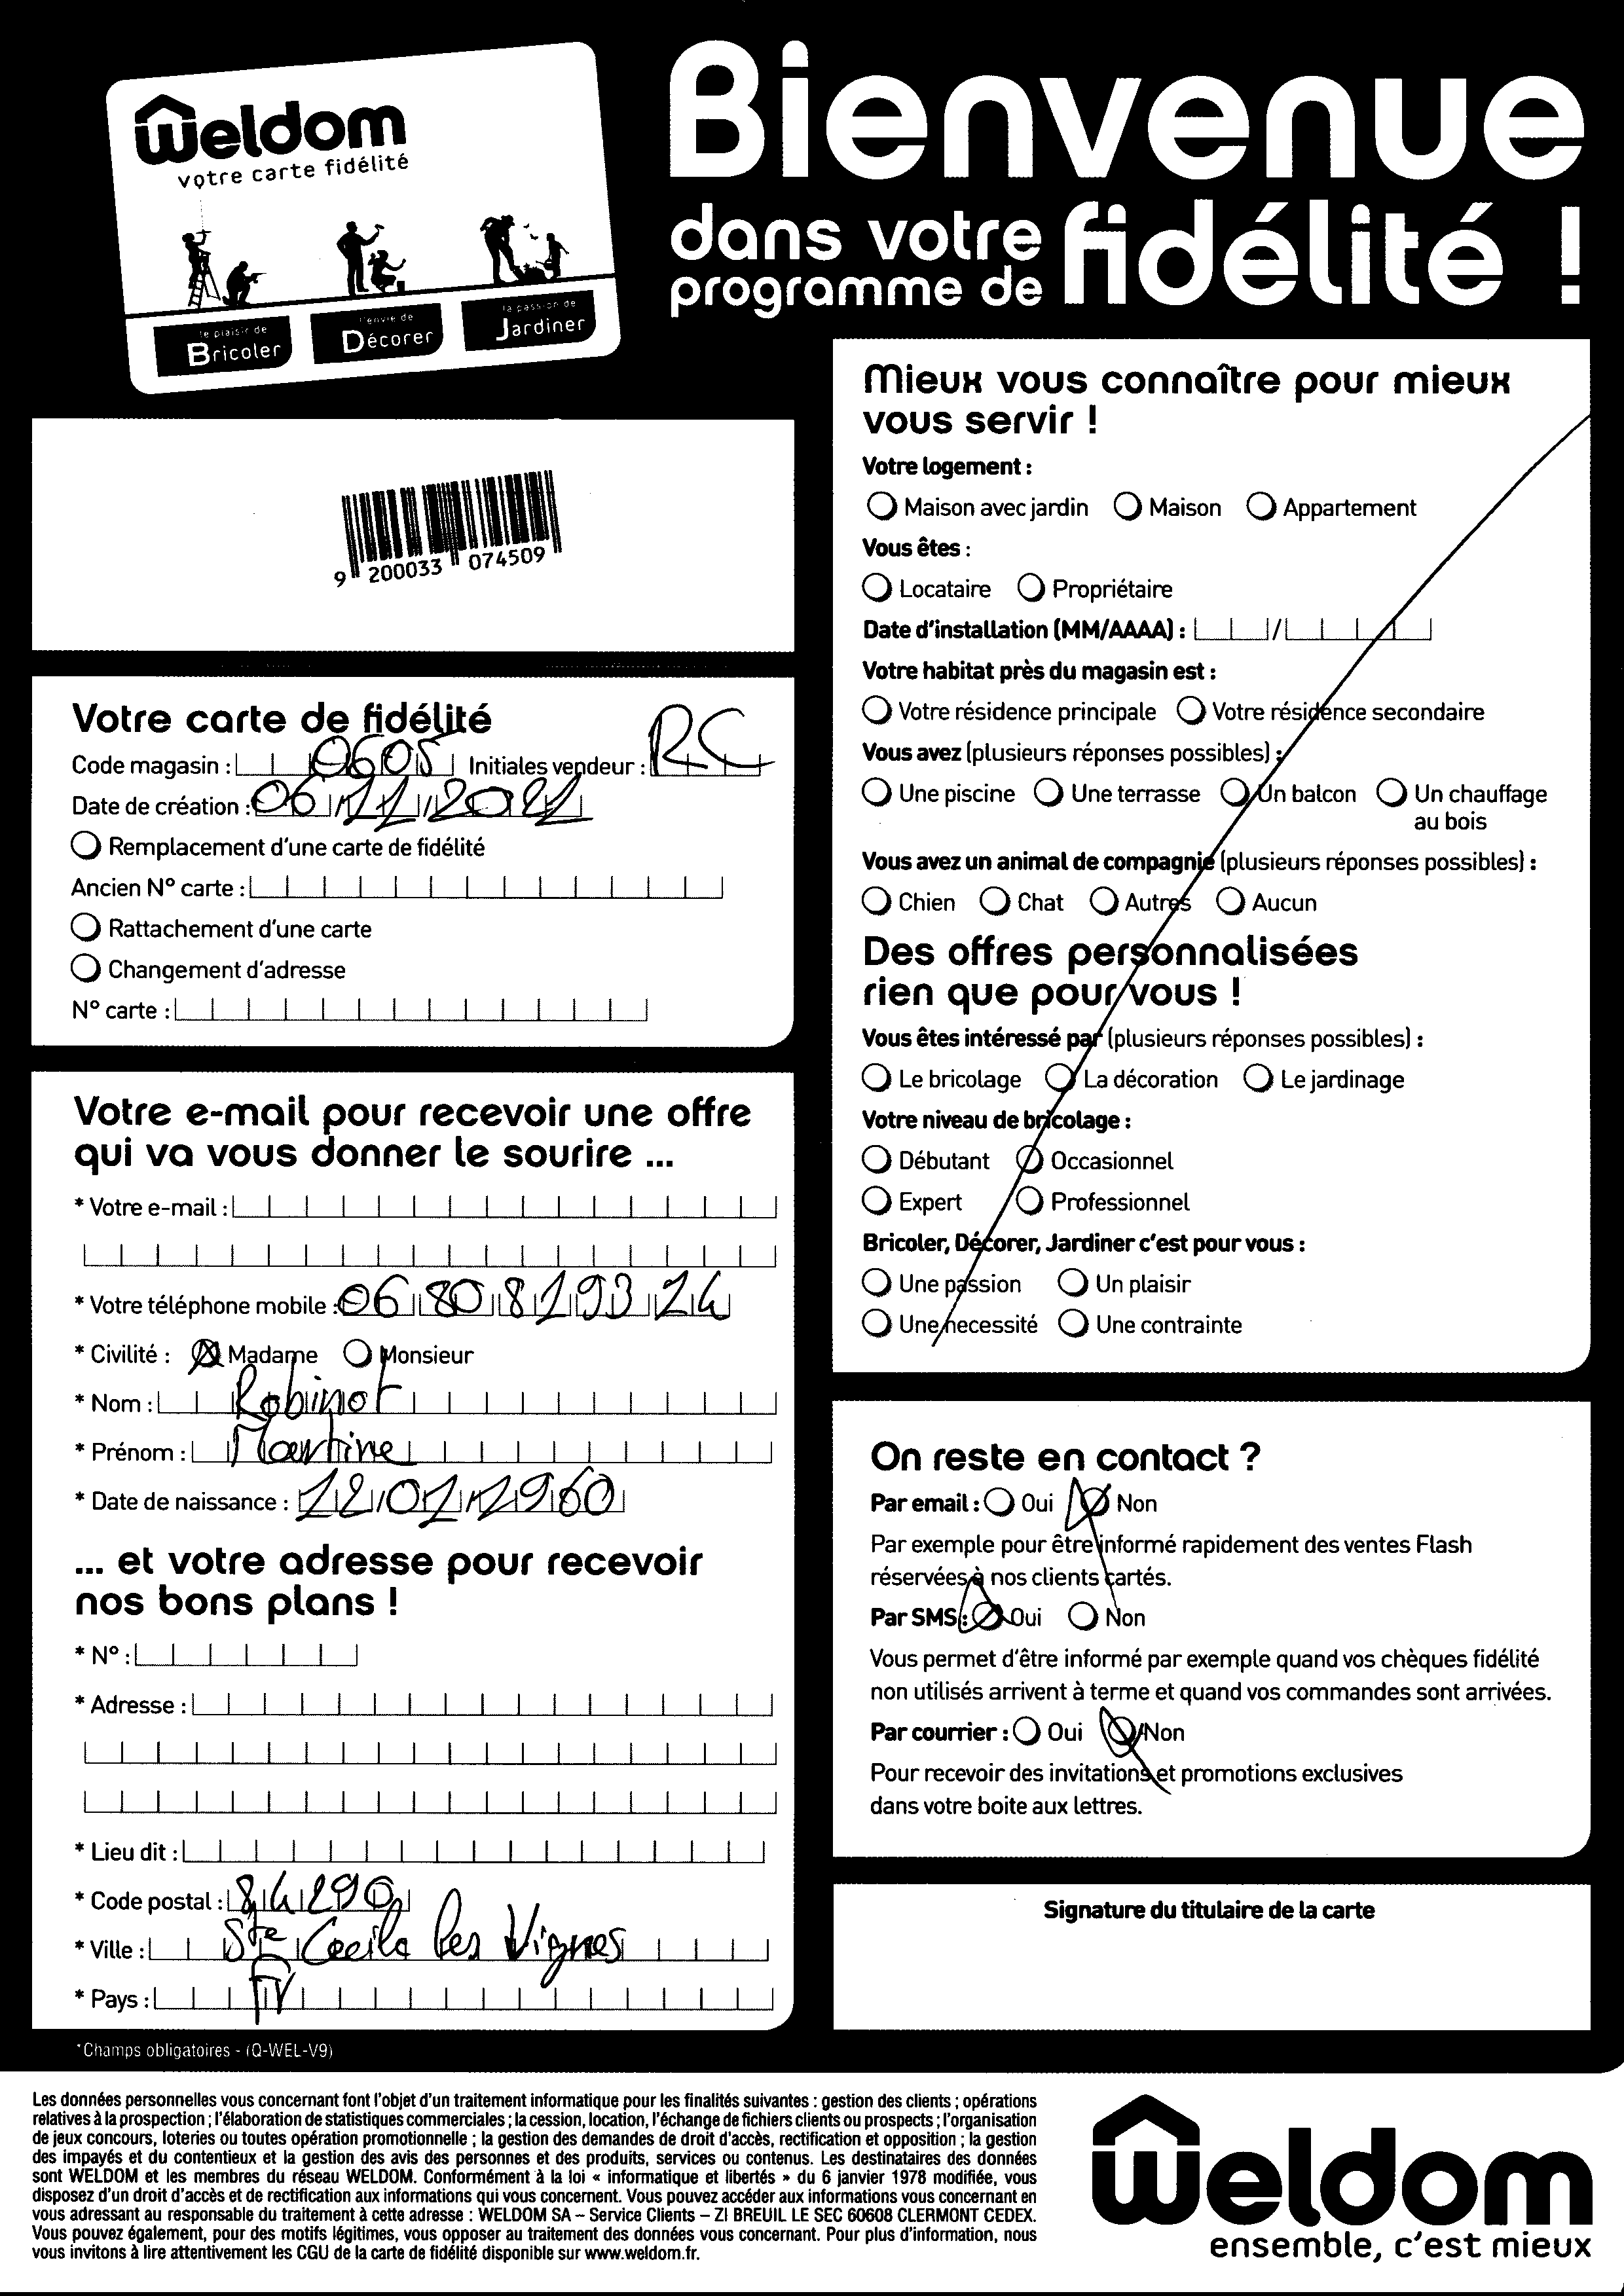 Weldom
votre carte fidélité
le plaisir de
Bricoler
l'envie de
Décorer
la passion de
Jardiner
Bienvenue
dans votre
programme de
fidélité !
9 200033 074509
Votre carte de fidélité
Code magasin : 0605 Initiales vendeur : RC
Date de création : 06/11/2021
Remplacement d'une carte de fidélité
Ancien N° carte :
Rattachement d'une carte
Changement d'adresse
N° carte :
Votre e-mail pour recevoir une offre
qui va vous donner le sourire ...
* Votre e-mail :
* Votre téléphone mobile : 06 80 81 93 24
* Civilité : Madame Monsieur
* Nom : Robinot
* Prénom : Martine
* Date de naissance : 12/01/1960
... et votre adresse pour recevoir
nos bons plans !
* N° :
* Adresse :
* Lieu dit :
* Code postal : 84290
* Ville : Ste Cecile les Vignes
* Pays : Fr
*Champs obligatoires - (Q-WEL-V9)
Mieux vous connaître pour mieux
vous servir !
Votre logement :
Maison avec jardin Maison Appartement
Vous êtes :
Locataire Propriétaire
Date d'installation (MM/AAAA) : /
Votre habitat près du magasin est :
Votre résidence principale Votre résidence secondaire
Vous avez (plusieurs réponses possibles) :
Une piscine Une terrasse Un balcon Un chauffage
au bois
Vous avez un animal de compagnie (plusieurs réponses possibles) :
Chien Chat Autres Aucun
Des offres personnalisées
rien que pour vous !
Vous êtes intéressé par (plusieurs réponses possibles) :
Le bricolage La décoration Le jardinage
Votre niveau de bricolage :
Débutant Occasionnel
Expert Professionnel
Bricoler, Décorer, Jardiner c'est pour vous :
Une passion Un plaisir
Une necessité Une contrainte
On reste en contact ?
Par email : Oui Non
Par exemple pour être informé rapidement des ventes Flash
réservées à nos clients cartés.
Par SMS : Oui Non
Vous permet d'être informé par exemple quand vos chèques fidélité
non utilisés arrivent à terme et quand vos commandes sont arrivées.
Par courrier : Oui Non
Pour recevoir des invitations et promotions exclusives
dans votre boite aux lettres.
Signature du titulaire de la carte
Les données personnelles vous concernant font l'objet d'un traitement informatique pour les finalités suivantes : gestion des clients ; opérations
relatives à la prospection ; l'élaboration de statistiques commerciales ; la cession, location, l'échange de fichiers clients ou prospects ; l'organisation
de jeux concours, loteries ou toutes opération promotionnelle ; la gestion des demandes de droit d'accès, rectification et opposition ; la gestion
des impayés et du contentieux et la gestion des avis des personnes et des produits, services ou contenus. Les destinataires des données
sont WELDOM et les membres du réseau WELDOM. Conformément à la loi « informatique et libertés » du 6 janvier 1978 modifiée, vous
disposez d'un droit d'accès et de rectification aux informations qui vous concernent. Vous pouvez accéder aux informations vous concernant en
vous adressant au responsable du traitement à cette adresse : WELDOM SA – Service Clients – ZI BREUIL LE SEC 60608 CLERMONT CEDEX.
Vous pouvez également, pour des motifs légitimes, vous opposer au traitement des données vous concernant. Pour plus d'information, nous
vous invitons à lire attentivement les CGU de la carte de fidélité disponible sur www.weldom.fr.
Weldom
ensemble, c'est mieux